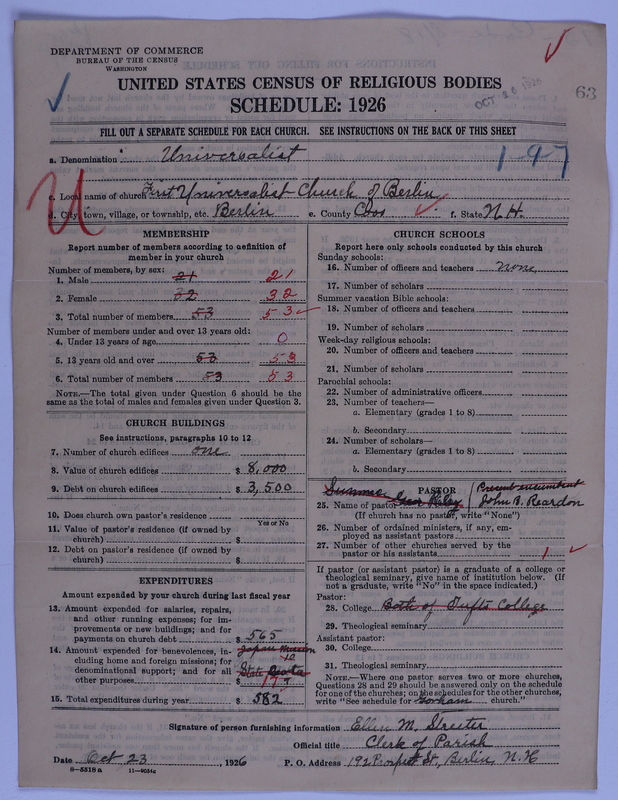 DEPARTMENT OF COMMERCE
BUREAU OF THE CENSUS
WASHINGTON
UNITED STATES CENSUS OF RELIGIOUS BODIES
SCHEDULE: 1926
OCT 26 1926
63
FILL OUT A SEPARATE SCHEDULE FOR EACH CHURCH. SEE INSTRUCTIONS ON THE BACK OF THIS SHEET
a. Denomination Universalist
1-97
c. Local name of church First Universalist Church of Berlin
U
d. City, town, village, or township, etc. Berlin e. County Coos f. State N.H.
MEMBERSHIP
Report number of members according to definition of
member in your church
Number of members, by sex:
1. Male 21 21
2. Female 32 32
3. Total number of members 53 53
Number of members under and over 13 years old:
4. Under 13 years of age 0
5. 13 years old and over 53 53
6. Total number of members 53 53
NOTE.—The total given under Question 6 should be
same as the total of males and females given under Question 3.
CHURCH BUILDINGS
See instructions, paragraphs 10 to 12
7. Number of church edifices one
8. Value of church edifices $ 8,000
9. Debt on church edifices $ 3,500
10. Does church own pastor's residence
Yes or No
11. Value of pastor's residence (if owned by
church) $
12. Debt on pastor's residence (if owned by
church) $
EXPENDITURES
Amount expended by your church during last fiscal year
13. Amount expended for salaries, repairs,
and other running expenses; for im-
provements or new buildings; and for
payments on church debt $ 565
14. Amount expended for benevolences, in- Japan Mission
cluding home and foreign missions; for
denominational support; and for all State Quota
other purposes $ 17
15. Total expenditures during year $ 582
CHURCH SCHOOLS
Report here only schools conducted by this church
Sunday schools:
16. Number of officers and teachers none
17. Number of scholars
Summer vacation Bible schools:
18. Number of officers and teachers
19. Number of scholars
Week-day religious schools:
20. Number of officers and teachers
21. Number of scholars
Parochial schools:
22. Number of administrative officers
23. Number of teachers—
a. Elementary (grades 1 to 8)
b. Secondary
24. Number of scholars—
a. Elementary (grades 1 to 8)
b. Secondary
PASTOR
Summer
Present incumbent
25. Name of pastor John B. Reardon
(If church has no pastor, write "None")
26. Number of ordained ministers, if any, em-
ployed as assistant pastors
27. Number of other churches served by the
pastor or his assistants 1
If pastor (or assistant pastor) is a graduate of a college or
theological seminary, give name of institution below. (If
not a graduate, write "No" in the space indicated.)
Pastor:
28. College Both of Tufts College
29. Theological seminary
Assistant pastor:
30. College
31. Theological seminary
NOTE.—Where one pastor serves two or more churches,
Questions 28 and 29 should be answered only on the schedule
for one of the churches; on the schedules for the other churches,
write "See schedule for Gorham church."
Signature of person furnishing information Ellen M. Streeter
Official title Clerk of Parish
Date Oct 23, 1926 P. O. Address 192 Prospect St., Berlin, N.H
8—5518a 11—9034a